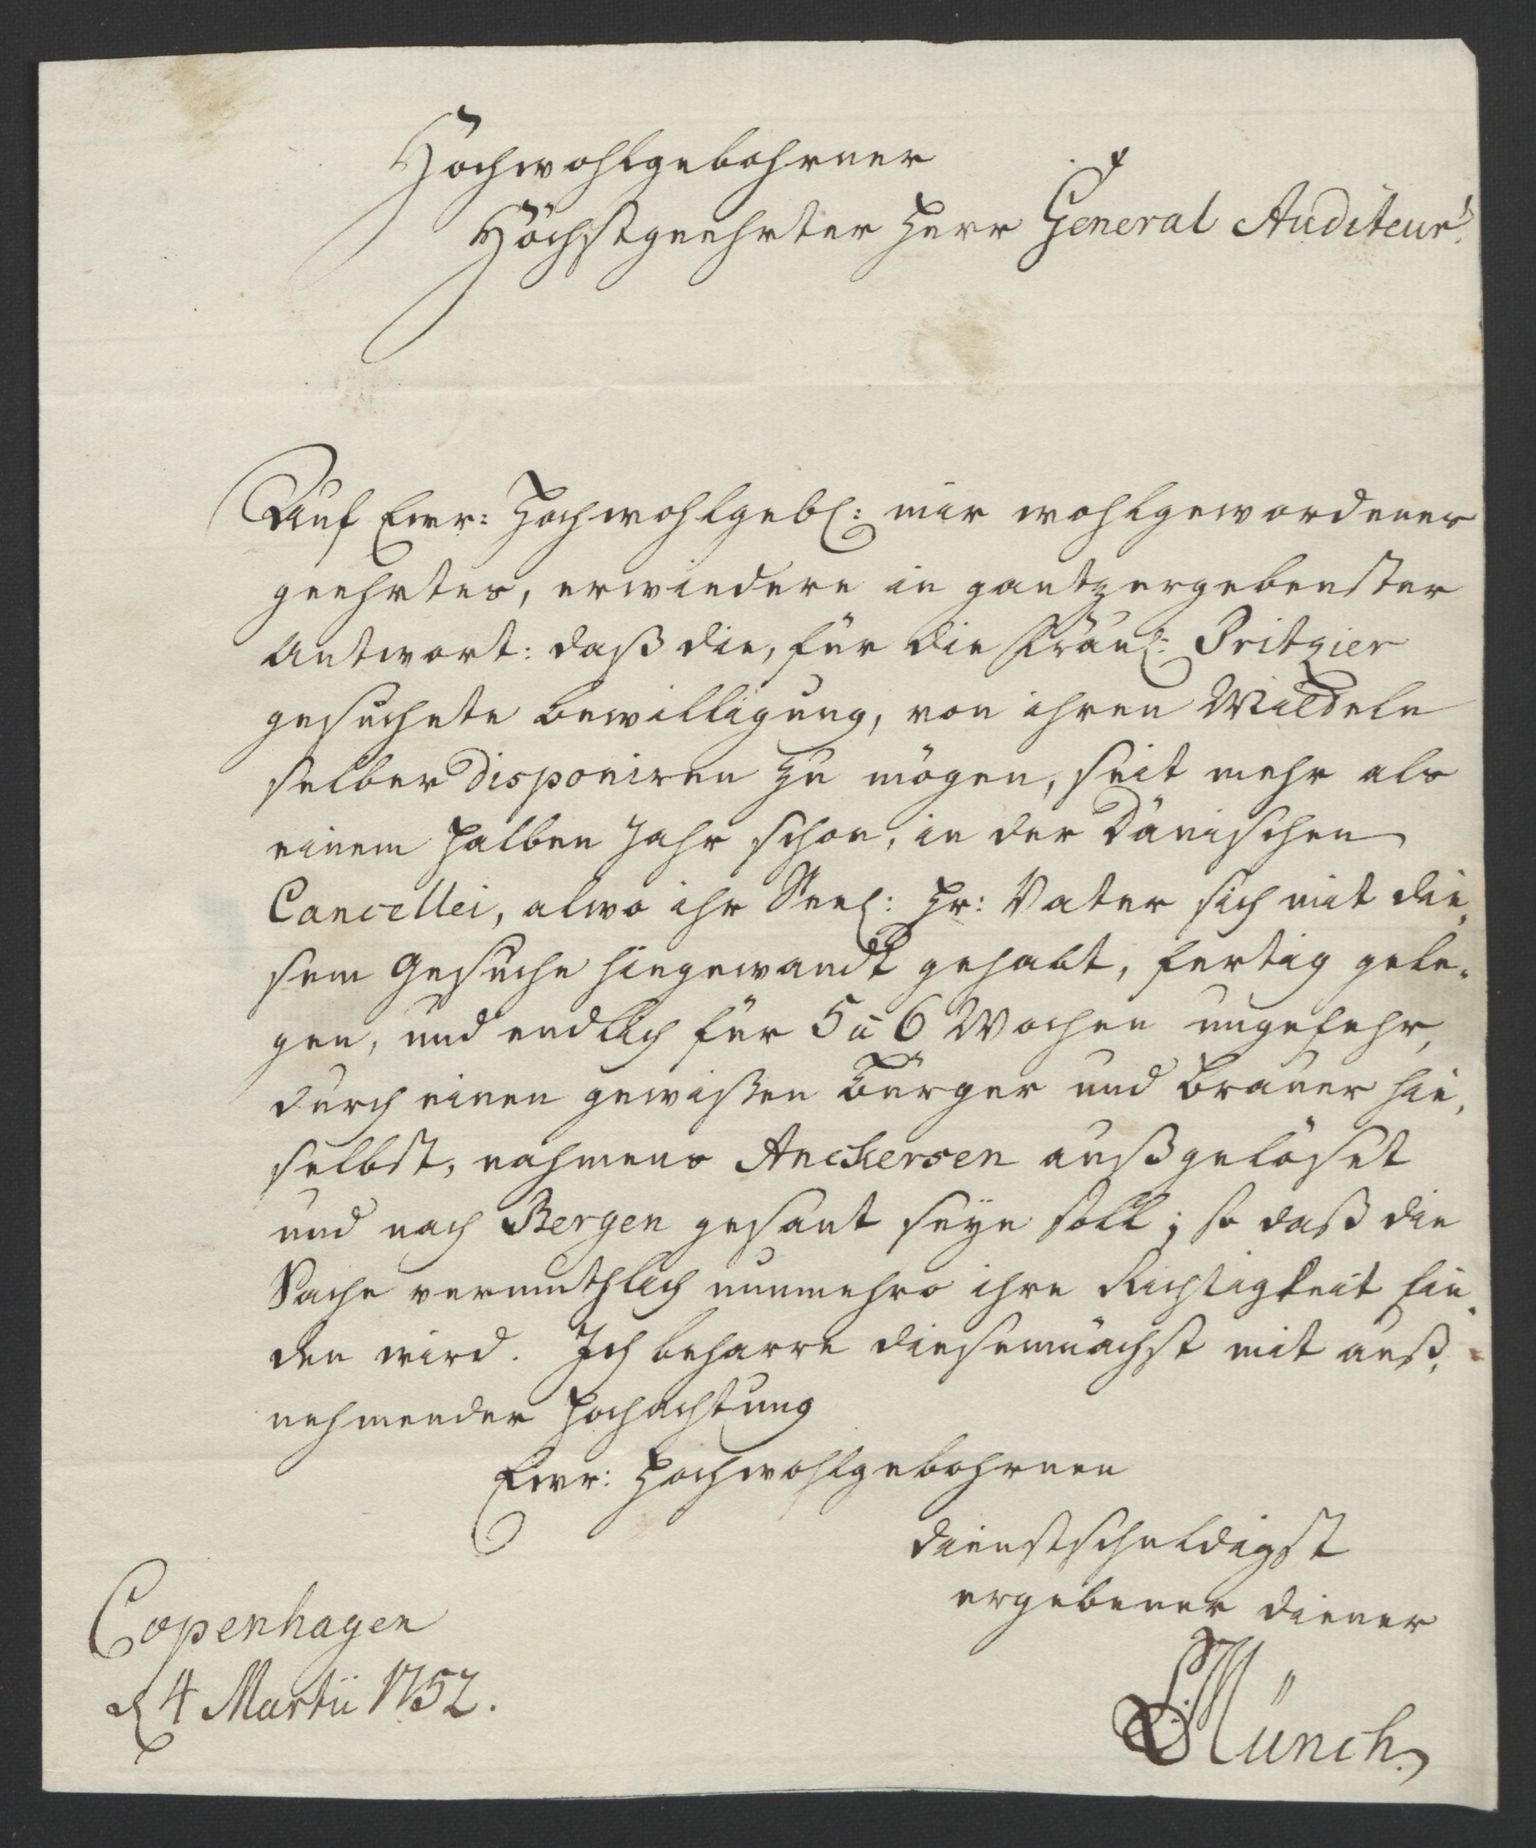 Hochwohlgebohrner
Höchstgeehrter Herr General Auditeur
Auf Ewr: Hochwohlgebl: mir wohlgewordenes
geehrtes, erwiedere in gantzergebenster
Antwort: daß die, für die Fräul: Pritzier
gesuchete bewilligung, von ihren Mitteln
selber disponiren zu mögen, seit mehr als
einem halben Jahr schon, in der Dänischen
Cancellei, alwo ihr Seel: Hr: Vater sich mit die,
sem Gesuche hingewandt gehabt, fertig gele,
gen, und endlich für 5 à 6 Wochen ungefehr,
durch einen gewißen Bürger und Brauer hie,
selbst, nahmens Anckersen außgelöset
und nach Bergen gesant seyn soll; so daß die
Sache vermuthlich nunmehro ihre Richtigkeit fin,
den wird. Ich beharre diesemnächst mit auß,
nehmender Hochachtung
Ewr: Hochwohlgebohrnen
dienstschuldigst
ergebener diener
Copenhagen
d 4 Martii 1752.
Münch.